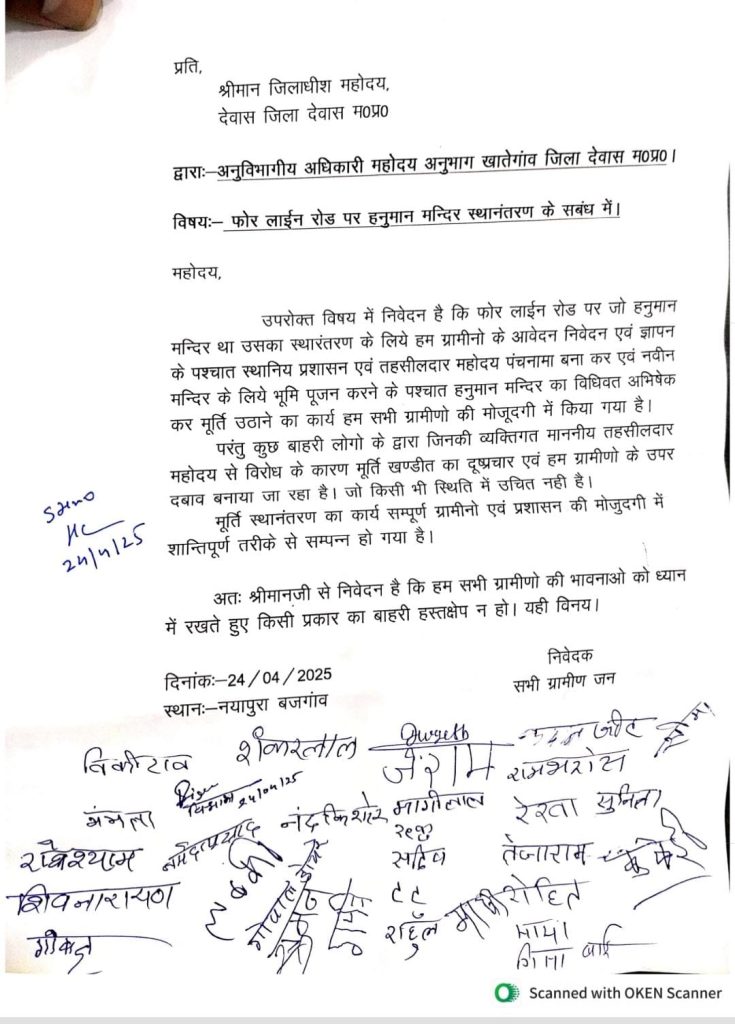 प्रति,
श्रीमान जिलाधीश महोदय,
देवास जिला देवास म0प्र0
द्वाराः–अनुविभागीय अधिकारी महोदय अनुभाग खातेगांव जिला देवास म0प्र0।
विषयः– फोर लाईन रोड पर हनुमान मन्दिर स्थानंतरण के सबंध में।
महोदय,
उपरोक्त विषय में निवेदन है कि फोर लाईन रोड पर जो हनुमान
मन्दिर था उसका स्थारंतरण के लिये हम ग्रामीनो के आवेदन निवेदन एवं ज्ञापन
के पश्चात स्थानिय प्रशासन एवं तहसीलदार महोदय पंचनामा बना कर एवं नवीन
मन्दिर के लिये भूमि पूजन करने के पश्चात हनुमान मन्दिर का विधिवत अभिषेक
कर मूर्ति उठाने का कार्य हम सभी ग्रामीणो की मोजूदगी में किया गया है।
परंतु कुछ बाहरी लोगो के द्वारा जिनकी व्यक्तिगत माननीय तहसीलदार
महोदय से विरोध के कारण मूर्ति खण्डीत का दूष्प्रचार एवं हम ग्रामीनो के उपर
दबाव बनाया जा रहा है। जो किसी भी स्थिति में उचित नही है।
मूर्ति स्थानंतरण का कार्य सम्पूर्ण ग्रामीनो एवं प्रशासन की मोजुदगी में
शान्तिपूर्ण तरीके से सम्पन्न हो गया है।
24/4/25
अतः श्रीमानजी से निवेदन है कि हम सभी ग्रामीणो की भावनाओ को ध्यान
में रखते हुए किसी प्रकार का बाहरी हस्तक्षेप न हो। यही विनय।
निवेदक
सभी ग्रामीण जन
दिनांकः–24/04/2025
स्थानः–नयापुरा बजगांव
शंकरलाल
जेराम
रामभरोस
24/04/25
नंदकिशोर
मागीलाल
रेखा सुनिता
राधेश्याम
नर्मदाप्रसाद
तेजाराम
शिवनारायण
राहुल
रोहित
माया
Scanned with OKEN Scanner